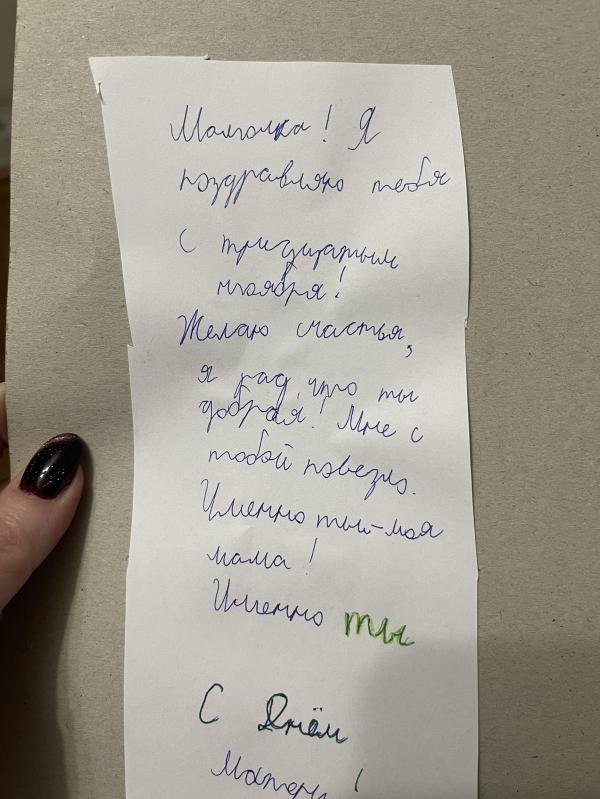 Мамочка! Я
поздравляю тебя
с тридцатым
ноября!
Желаю счастья,
я рад, что ты
добрая! Мне с
тобой повезло.
Именно ты-моя
мама!
Именно ты
С Днём
Матери!